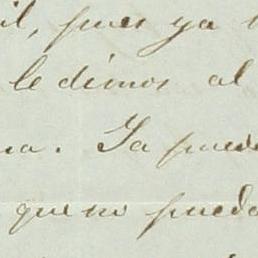 il, pues ya
le dimos al
na. Ya puede
que no puedo